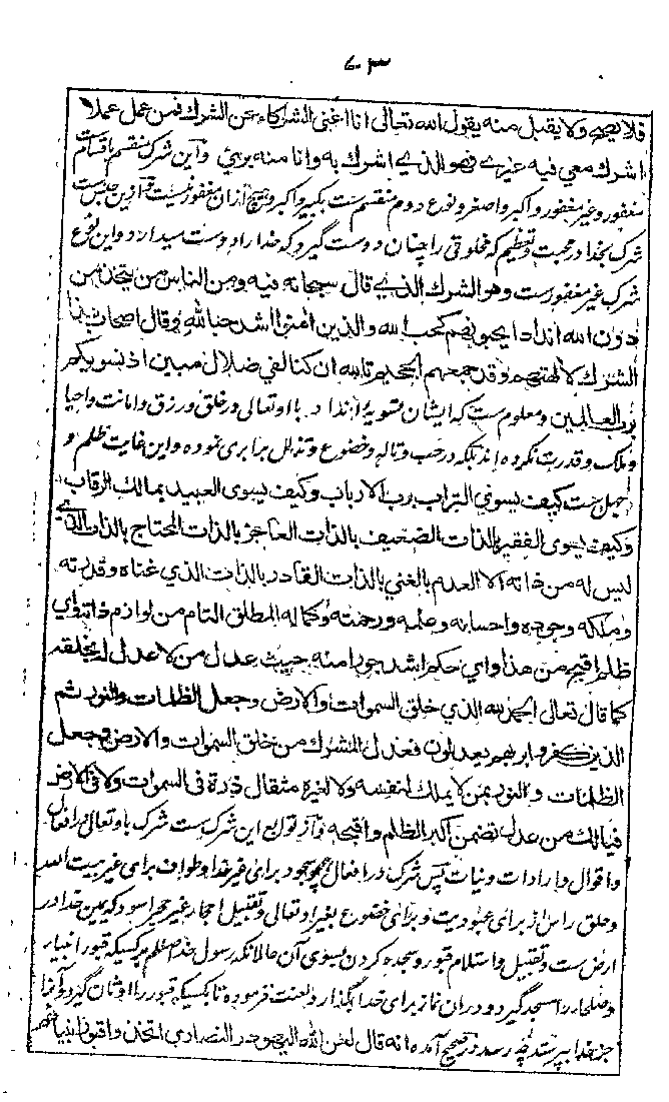 ٧٣
فلا يصح ولا يقبل منه يقول الله تعالى انا اغنى الشركاء عن الشرك فمن عمل عملا
اشرك معي فيه غيري فهو للذي اشرك به وانا منه بريء واين شرك منقسم باقسام ست
مغفور و غير مغفور و اكبر و اصغر و نوع دوم منقسم ست بكبير و اكبر و هيچ از ان مغفور نيست و ازين جنس ست
شرك بخدا در محبت و تعظيم كه مخلوقى را چنان دوست گيرد كه خدا را دوست ميدارد و اين نوع
شرك غير مغفور ست وهو الشرك الذي قال سبحانه فيه ومن الناس من يتخذ من
دون الله اندادا يحبونهم كحب الله والذين امنوا اشد حبا لله وقال اصحاب هذا
الشرك لالهتهم وقد جمعهم الجحيم تالله ان كنا لفي ضلال مبين اذ نسويكم
برب العالمين و معلوم ست كه ايشان تسويهٔ انداد با او تعالى در خلق و رزق و اماتت و احيا
و ملك و قدرت نكرده اند بلكه در حب و تاله و خضوع و تذلل برابرى نموده و اين غايت ظلم و
جهل ست كيف يسوي التراب برب الارباب وكيف يسوى العبيد بمالك الرقاب
وكيف يسوى الفقير بالذات الضعيف بالذات العاجز بالذات المحتاج بالذات الذي
ليس له من ذاته الا العدم بالغني بالذات القادر بالذات الذي غناه وقدرته
وملكه وجوده واحسانه وعلمه ورحمته وكماله المطلق التام من لوازم ذاته واي
ظلم اقبح من هذا واي حكم اشد جورا منه حيث عدل من لا عدل له بخلقه
كما قال تعالى الحمد لله الذي خلق السموات والارض وجعل الظلمات والنور ثم
الذين كفروا بربهم يعدلون فعدل المشرك من خلق السموات والارض وجعل
الظلمات والنور بمن لا يملك لنفسه ولا لغيره مثقال ذرة في السموات ولا في الارض
فيالك من عدل تضمن اكبر الظلم واقبحه و از توابع اين شرك ست شرك باو تعالى در افعال
و اقوال و ارادات و نيات پس شرك در افعال همچو سجود براى غير خدا و طواف براى غير بيت الله
و حلق راس از براى عبوديت و براى خضوع بغير او تعالى و تقبيل احجار غير حجر اسود كه يمين خدا در
ارض ست و تقبيل و استلام قبور و سجده كردن بسوى آن حالانكه رسول خدا صلعم بر كسيكه قبور انبيا
و صلحا را مسجد گيرد و دران نماز براى خدا بگذارد لعنت فرموده تا بكسيكه قبور را اوثان گيرد و آنرا
جز خدا بپرستد چه رسد در صحيح آمده انه قال لعن الله اليهود والنصارى اتخذوا قبور انبيائهم